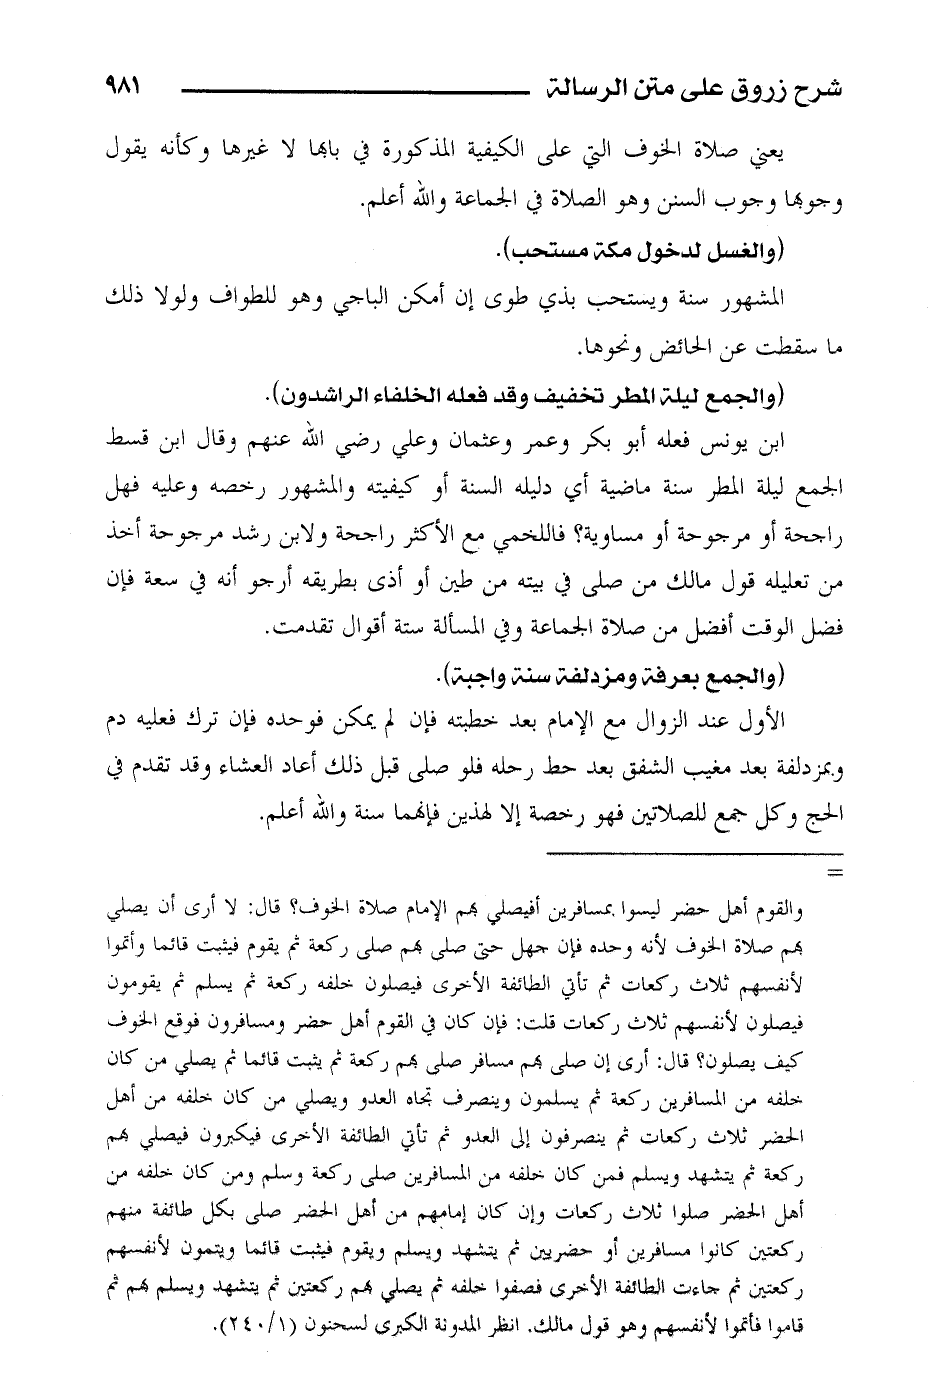 شرح زروق على متن الرسالة ٩٨١
يعني صلاة الخوف التي على الكيفية المذكورة في بابها لا غيرها وكأنه يقول
وجوبها وجوب السنن وهو الصلاة في الجماعة والله أعلم.
(والغسل لدخول مكة مستحب).
المشهور سنة ويستحب بذي طوى إن أمكن الباجي وهو للطواف ولولا ذلك
ما سقطت عن الحائض ونحوها.
(والجمع ليلة المطر تخفيف وقد فعله الخلفاء الراشدون).
ابن يونس فعله أبو بكر وعمر وعثمان وعلي رضي الله عنهم وقال ابن قسط
الجمع ليلة المطر سنة ماضية أي دليله السنة أو كيفيته والمشهور رخصه وعليه فهل
راجحة أو مرجوحة أو مساوية؟ فاللخمي مع الأكثر راجحة ولابن رشد مرجوحة أخذ
من تعليله قول مالك من صلى في بيته من طين أو أذى بطريقه أرجو أنه في سعة فإن
فضل الوقت أفضل من صلاة الجماعة وفي المسألة ستة أقوال تقدمت.
(والجمع بعرفة ومزدلفة سنة واجبة).
الأول عند الزوال مع الإمام بعد خطبته فإن لم يمكن فوحده فإن ترك فعليه دم
وبمزدلفة بعد مغيب الشفق بعد حط رحله فلو صلى قبل ذلك أعاد العشاء وقد تقدم في
الحج وكل جمع للصلاتين فهو رخصة إلا لهذين فإنهما سنة والله أعلم.
=
والقوم أهل حضر ليسوا بمسافرين أفيصلي بهم الإمام صلاة الخوف؟ قال: لا أرى أن يصلي
بهم صلاة الخوف لأنه وحده فإن جهل حتى صلى بهم صلى ركعة ثم يقوم فيثبت قائما وأتموا
لأنفسهم ثلاث ركعات ثم تأتي الطائفة الأخرى فيصلون خلفه ركعة ثم يسلم ثم يقومون
فيصلون لأنفسهم ثلاث ركعات قلت: فإن كان في القوم أهل حضر ومسافرون فوقع الخوف
كيف يصلون؟ قال: أرى إن صلى بهم مسافر صلى بهم ركعة ثم يثبت قائما ثم يصلي من كان
خلفه من المسافرين ركعة ثم يسلمون وينصرف تجاه العدو ويصلي من كان خلفه من أهل
الحضر ثلاث ركعات ثم ينصرفون إلى العدو ثم تأتي الطائفة الأخرى فيكبرون فيصلي بهم
ركعة ثم يتشهد ويسلم فمن كان خلفه من المسافرين صلى ركعة وسلم ومن كان خلفه من
أهل الحضر صلوا ثلاث ركعات وإن كان إمامهم من أهل الحضر صلى بكل طائفة منهم
ركعتين كانوا مسافرين أو حضريين ثم يتشهد ويسلم ويقوم فيثبت قائما ويتمون لأنفسهم
ركعتين ثم جاءت الطائفة الأخرى فصفوا خلفه ثم يصلي بهم ركعتين ثم يتشهد ويسلم بهم ثم
قاموا فأتموا لأنفسهم وهو قول مالك. انظر المدونة الكبرى لسحنون (٢٤٠/١).